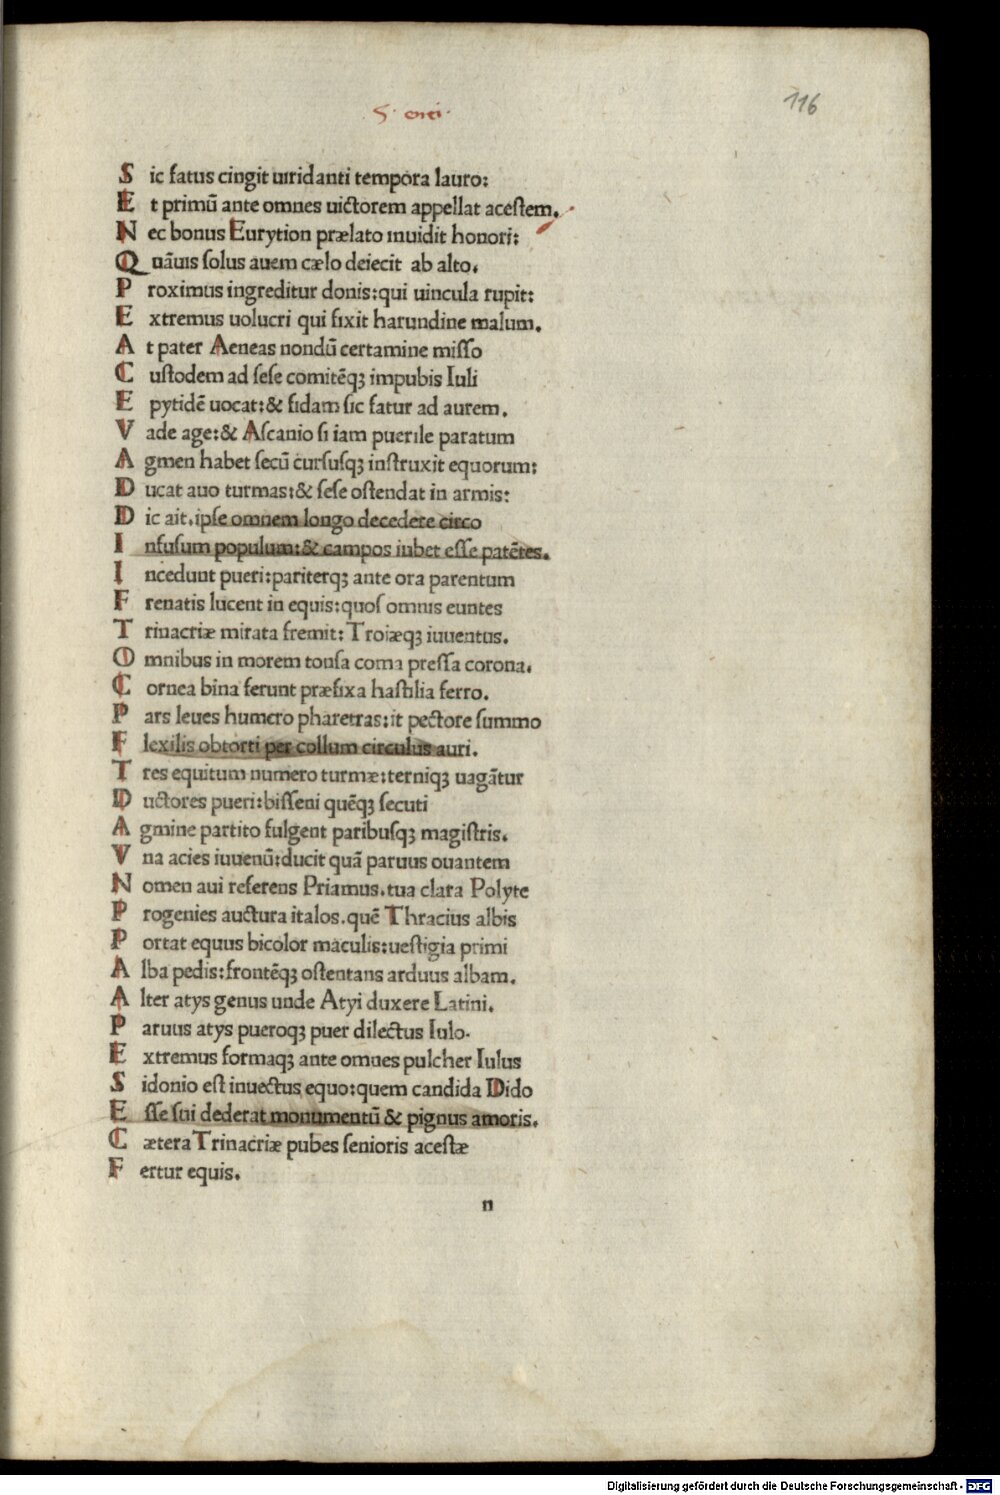 116
S ic fatus cingit uiridanti tempora lauro:
E t primū ante omnes uictorem appellat acestem.
N ec bonus Eurytion prælato inuidit honori:
Q uāuis solus auem cælo deiecit ab alto.
P roximus ingreditur donis:qui uincula rupit:
E xtremus uolucri qui fixit harundine malum.
A t pater Aeneas nondū certamine misso
C ustodem ad sese comitēqꝫ impubis Iuli
E pytidē uocat:& fidam sic fatur ad aurem.
V ade age:& Ascanio si iam puerile paratum
A gmen habet secū cursusqꝫ instruxit equorum:
D ucat auo turmas:& sese ostendat in armis:
D ic ait.ipse omnem longo decedere circo
I nfusum populum:& campos iubet esse patētes.
I ncedunt pueri:pariterqꝫ ante ora parentum
F renatis lucent in equis:quos omnis euntes
T rinacriæ mirata fremit:Troiæqꝫ iuuentus.
O mnibus in morem tonsa coma pressa corona.
C ornea bina ferunt præfixa hastilia ferro.
P ars leues humero pharetras:it pectore summo
F lexilis obtorti per collum circulus auri.
T res equitum numero turmæ:terniqꝫ uagātur
D uctores pueri:bisseni quēqꝫ secuti
A gmine partito fulgent paribusqꝫ magistris.
V na acies iuuenū:ducit quā paruus ouantem
N omen aui referens Priamus.tua clara Polyte
P rogenies auctura italos.quē Thracius albis
P ortat equus bicolor maculis:uestigia primi
A lba pedis:frontēqꝫ ostentans arduus albam.
A lter atys genus unde Atyi duxere Latini.
P aruus atys pueroqꝫ puer dilectus Iulo.
E xtremus formaqꝫ ante omnes pulcher Iulus
S idonio est inuectus equo:quem candida Dido
E sse sui dederat monumentū & pignus amoris.
C ætera Trinacriæ pubes senioris acestæ
F ertur equis.
n
Digitalisierung gefördert durch die Deutsche Forschungsgemeinschaft - DFG